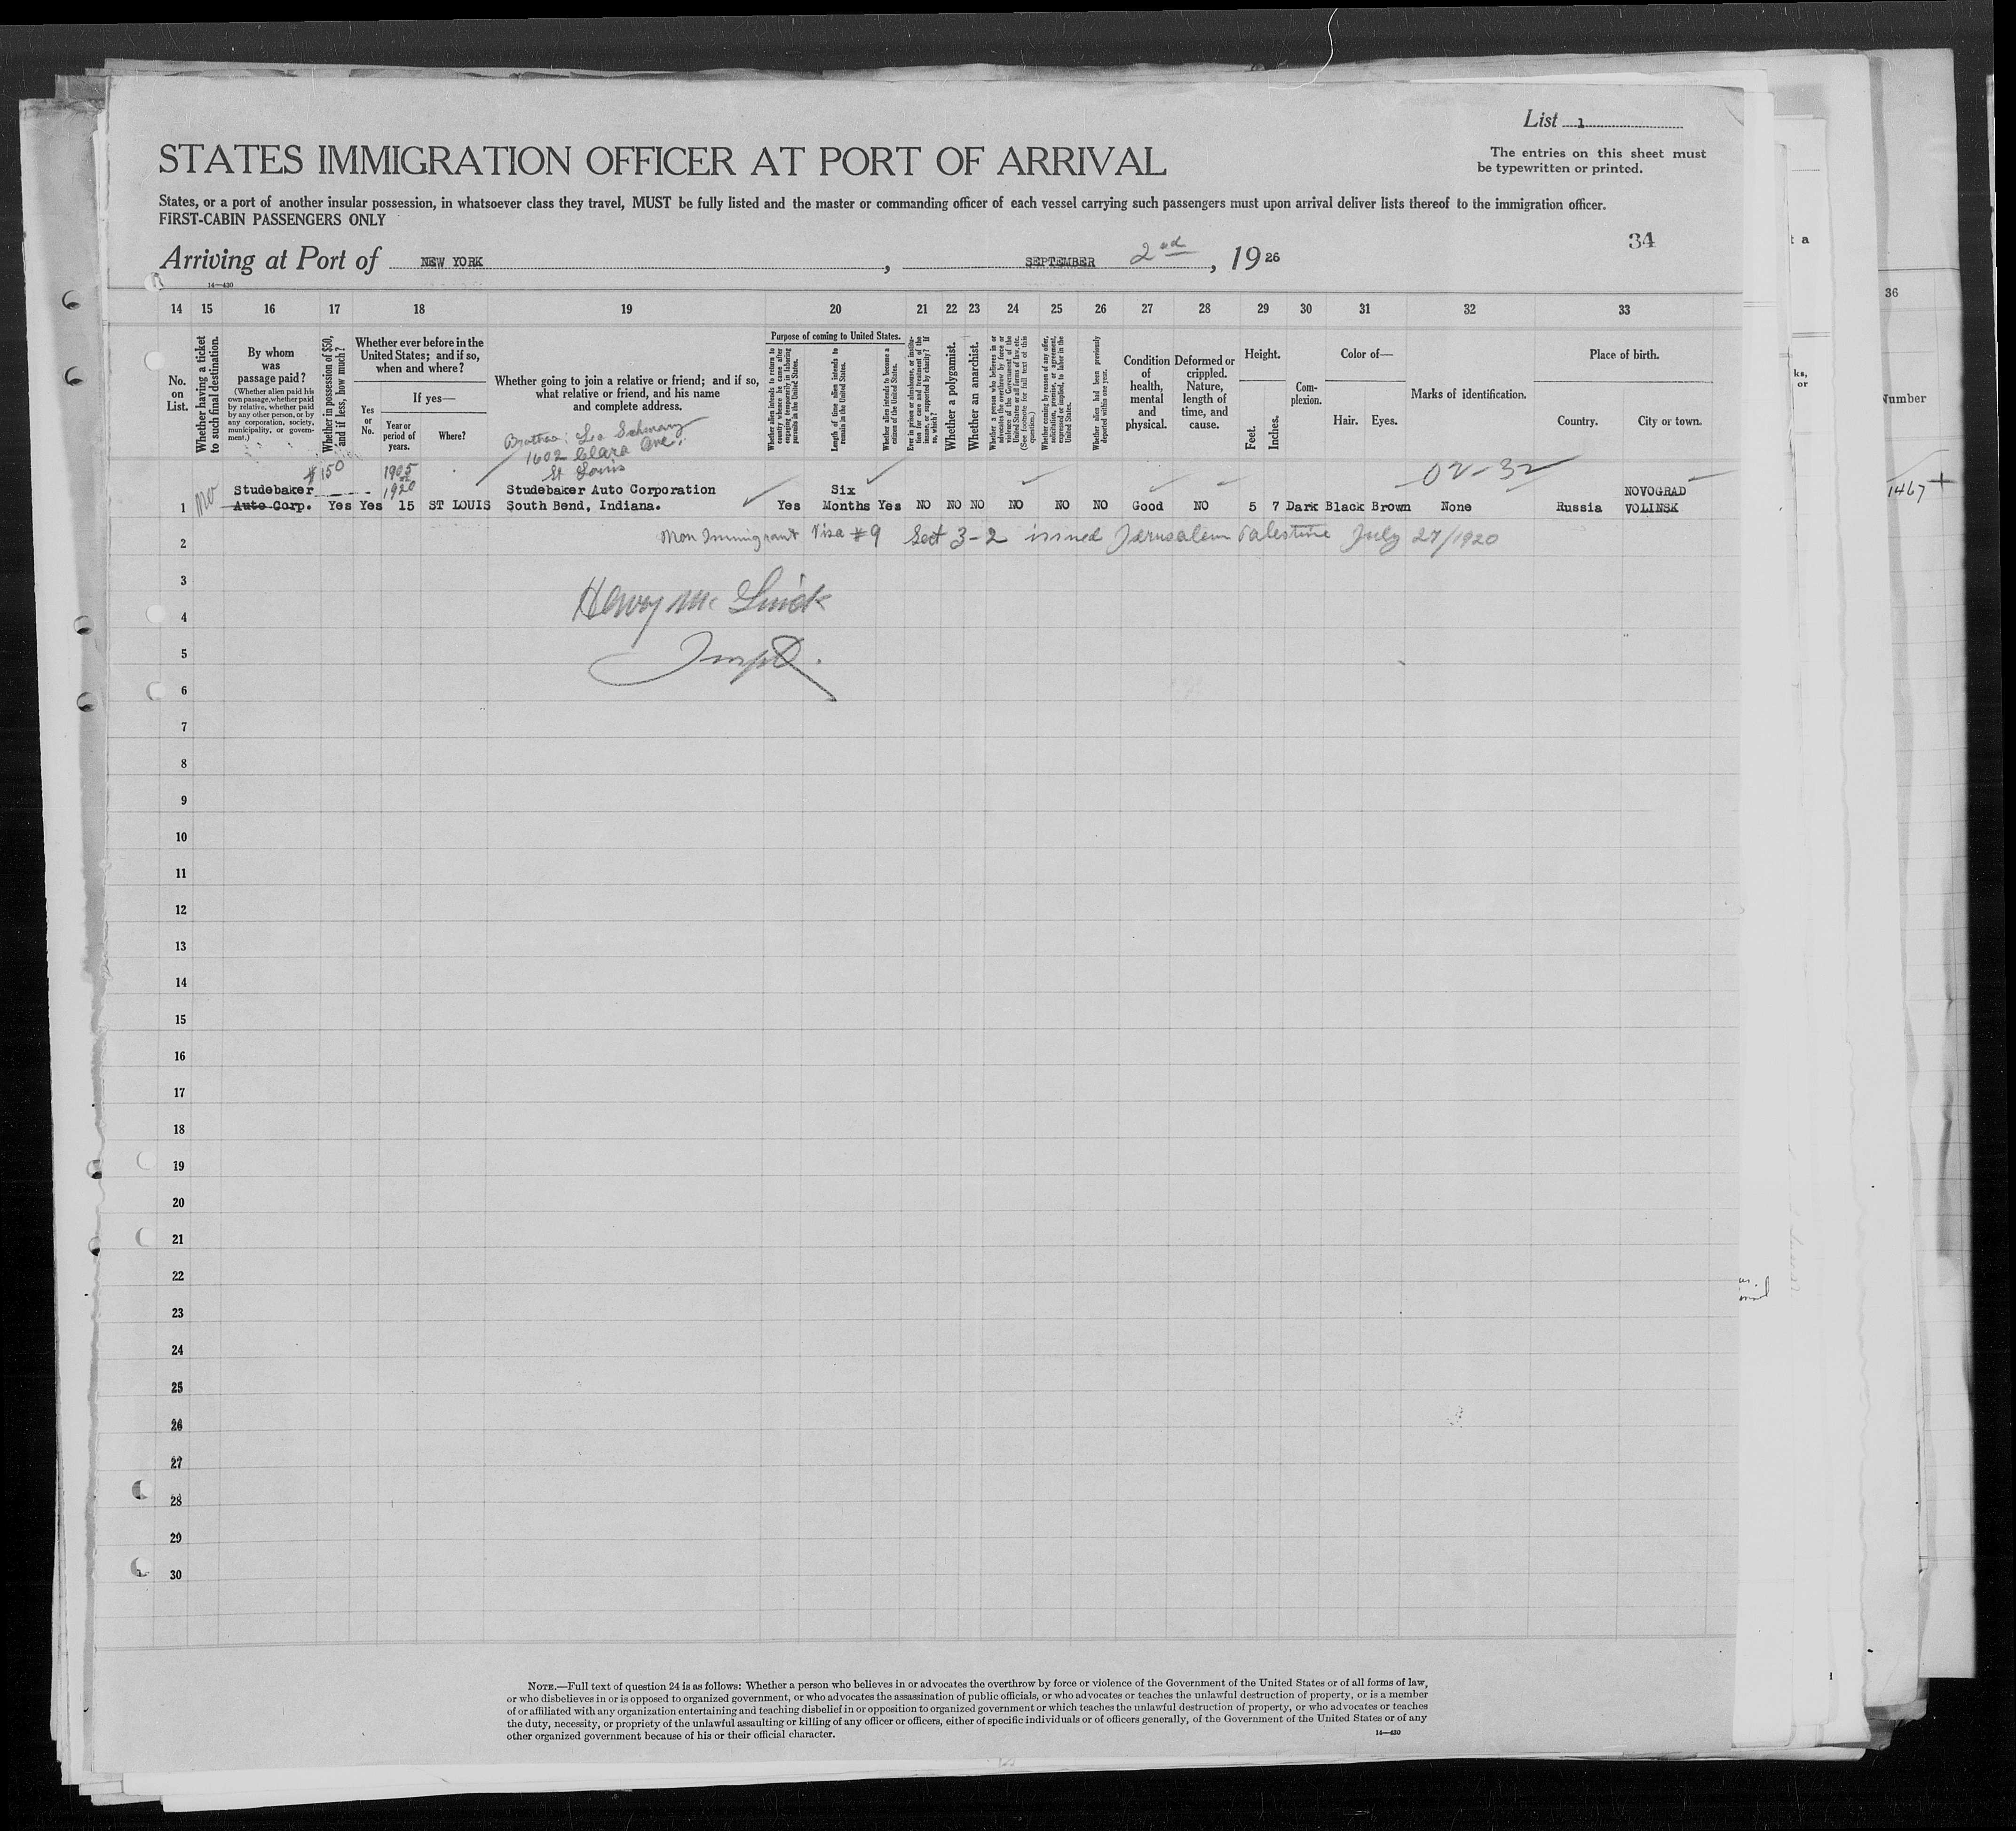 List 1
STATES IMMIGRATION OFFICER AT PORT OF ARRIVAL
The entries on this sheet must
be typewritten or printed.
States, or a port of another insular possession, in whatsoever class they travel, MUST be fully listed and the master or commanding officer of each vessel carrying such passengers must upon arrival deliver lists thereof to the immigration officer.
FIRST-CABIN PASSENGERS ONLY
34
Arriving at Port of NEW YORK, SEPTEMBER 2nd, 1926
14—430
14 15 16 17 18 19 20 21 22 23 24 25 26 27 28 29 30 31 32 33
No. on List.
Whether having a ticket to such final destination.
By whom was passage paid?
(Whether alien paid his own passage, whether paid by relative, whether paid by any other person, or by any corporation, society, municipality, or government.)
Whether in possession of $50, and if less, how much?
Whether ever before in the United States; and if so, when and where?
Yes or No.
If yes—
Year or period of years.
Where?
Whether going to join a relative or friend; and if so, what relative or friend, and his name and complete address.
Purpose of coming to United States.
Whether alien intends to return to country whence he came after engaging temporarily in laboring pursuits in the United States.
Length of time alien intends to remain in the United States.
Whether alien intends to become a citizen of the United States.
Ever in prison or almshouse, or institution for care and treatment of the insane, or supported by charity? If so, which?
Whether a polygamist.
Whether an anarchist.
Whether a person who believes in or advocates the overthrow by force or violence of the Government of the United States or all forms of law, etc. (See footnote for full text of this question.)
Whether coming by reason of any offer, solicitation, promise, or agreement, expressed or implied, to labor in the United States.
Whether alien had been previously deported within one year.
Condition of health, mental and physical.
Deformed or crippled. Nature, length of time, and cause.
Height.
Feet. Inches.
Complexion.
Color of—
Hair. Eyes.
Marks of identification.
Place of birth.
Country. City or town.
Brother: Leo
1602 Clara Ave.
St Louis
$150 1905
1920
02-32
No
Studebaker Studebaker Auto Corporation Six NOVOGRAD
1 Auto Corp. Yes Yes 15 ST LOUIS South Bend, Indiana. Yes Months Yes NO NO NO NO NO NO Good NO 5 7 Dark Black Brown None Russia VOLINSK
2 Non Immigrant Visa #9 Sect 3-2 issued Jerusalem Palestine July 27/1920
3
4
5
6
7
8
9
10
11
12
13
14
15
16
17
18
19
20
21
22
23
24
25
26
27
28
29
30
NOTE.—Full text of question 24 is as follows: Whether a person who believes in or advocates the overthrow by force or violence of the Government of the United States or of all forms of law,
or who disbelieves in or is opposed to organized government, or who advocates the assassination of public officials, or who advocates or teaches the unlawful destruction of property, or is a member
of or affiliated with any organization entertaining and teaching disbelief in or opposition to organized government or which teaches the unlawful destruction of property, or who advocates or teaches
the duty, necessity, or propriety of the unlawful assaulting or killing of any officer or officers, either of specific individuals or of officers generally, of the Government of the United States or of any
other organized government because of his or their official character.
14—430
t a
ks,
or
36
Number
1467